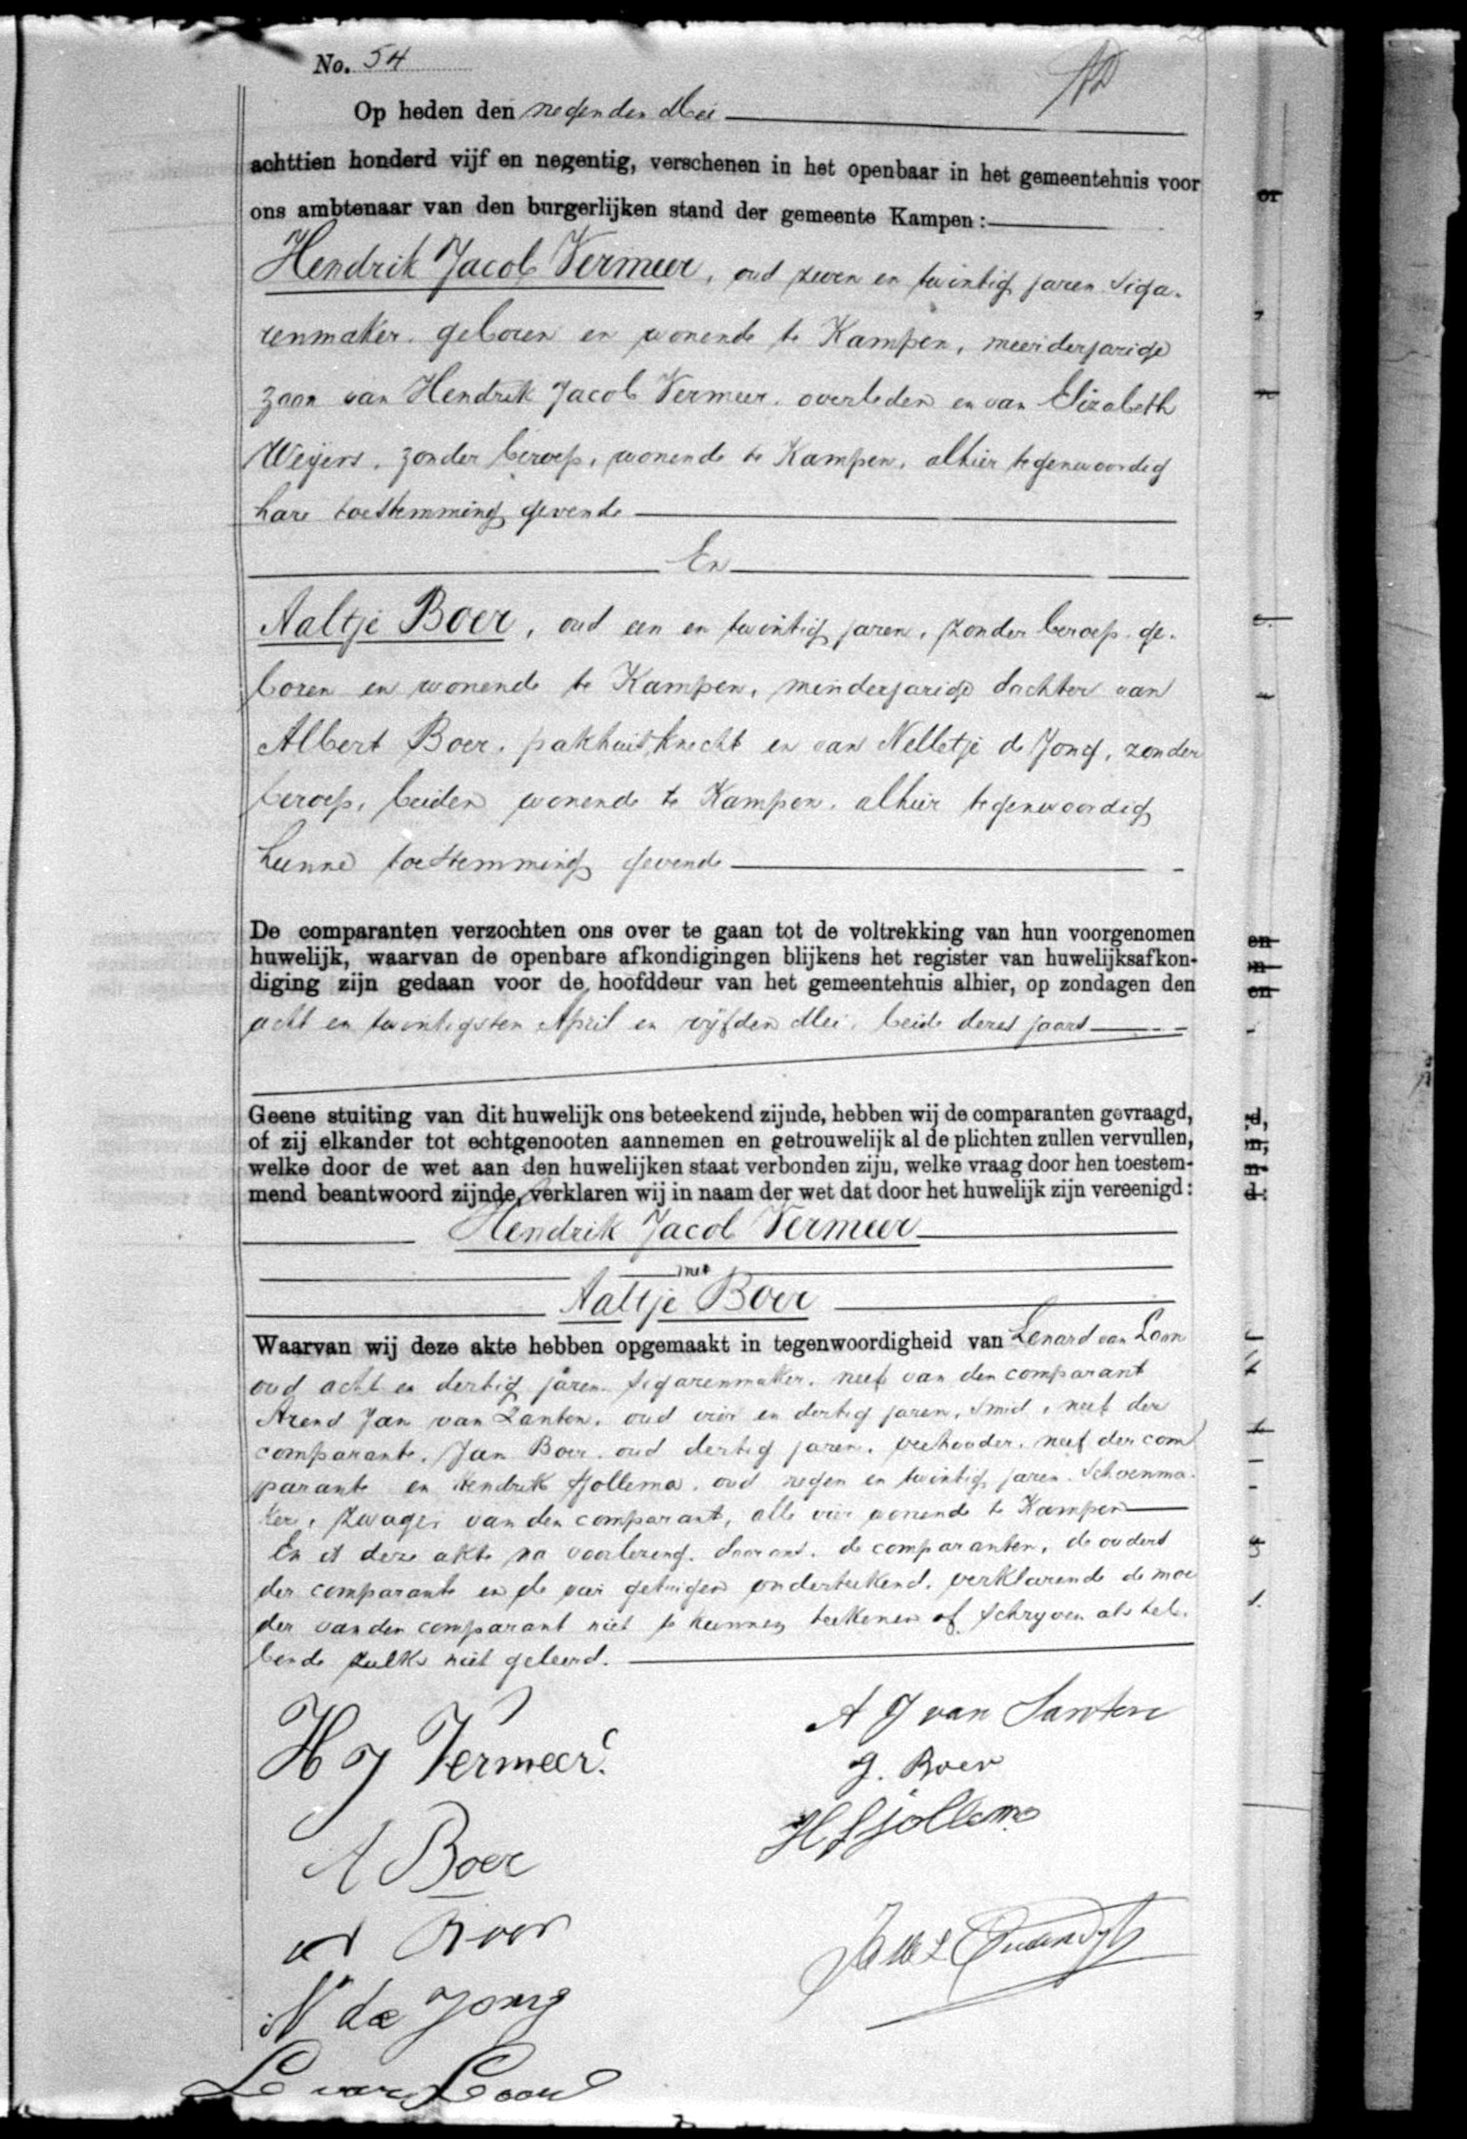 No. 54
Op heden den negenden Mei
achttien honderd vijf en negentig, verschenen in het openbaar in het gemeentehuis voor
ons ambtenaar van den burgerlijken stand der gemeente Kampen:
Hendrik Jacob Vermeer, oud zeven en twintig jaren, siga-
renmaker, geboren en wonende te Kampen, meerderjarige
zoon van Hendrik Jacob Vermeer, overleden en van Elizabeth
Weijers, zonder beroep, wonende te Kampen, alhier tegenwoordig
hare toestemming gevende
En
Aaltje Boer, oud een en twintig jaren, zonder beroep, ge-
boren en wonende te Kampen, minderjarige dochter van
Albert Boer, pakhuisknecht en van Nelletje de Jong, zonder
beroep, beiden wonende te Kampen, alhier tegenwoordig
hunne toestemming gevende
De comparanten verzochten ons over te gaan tot de voltrekking van hun voorgenomen
huwelijk, waarvan de openbare afkondigingen blijkens het register van huwelijksafkon-
diging zijn gedaan voor de hoofddeur van het gemeentehuis alhier, op zondagen den
acht en twintigsten April en vijfden Mei, beide dezes jaars
Geene stuiting van dit huwelijk ons beteekend zijnde, hebben wij de comparanten gevraagd,
of zij elkander tot echtgenooten aannemen en getrouwelijk al de plichten zullen vervullen,
welke door de wet aan den huwelijken staat verbonden zijn, welke vraag door hen toestem-
mend beantwoord zijnde, verklaren wij in naam der wet dat door het huwelijk zijn vereenigd:
Hendrik Jacob Vermeer
met
Aaltje Boer
Waarvan wij deze akte hebben opgemaakt in tegenwoordigheid van Lenard van Loon
oud acht en dertig jaren, sigarenmaker, neef van den comparant
Arend Jan van Zanten, oud vier en dertig jaren, smid, neef der
comparante, Jan Boer, oud dertig jaren, veehouder, neef der com
parante en Hendrik Sjollema, oud negen en twintig jaren, schoenma-
ker, zwager van den comparant, alle vier wonende te Kampen
En is deze akte na voorlezing, door ons, de comparanten, de ouders
der comparante en de vier getuigen onderteekend, verklarende de moe
der van den comparant niet te kunnen teekenen of schrijven als heb-
bende zulks niet geleerd.
H J Vermeer
A J van Santen
J. Boer
H Sjollema
A Boer
A Boer
N de Jong
L van Loon